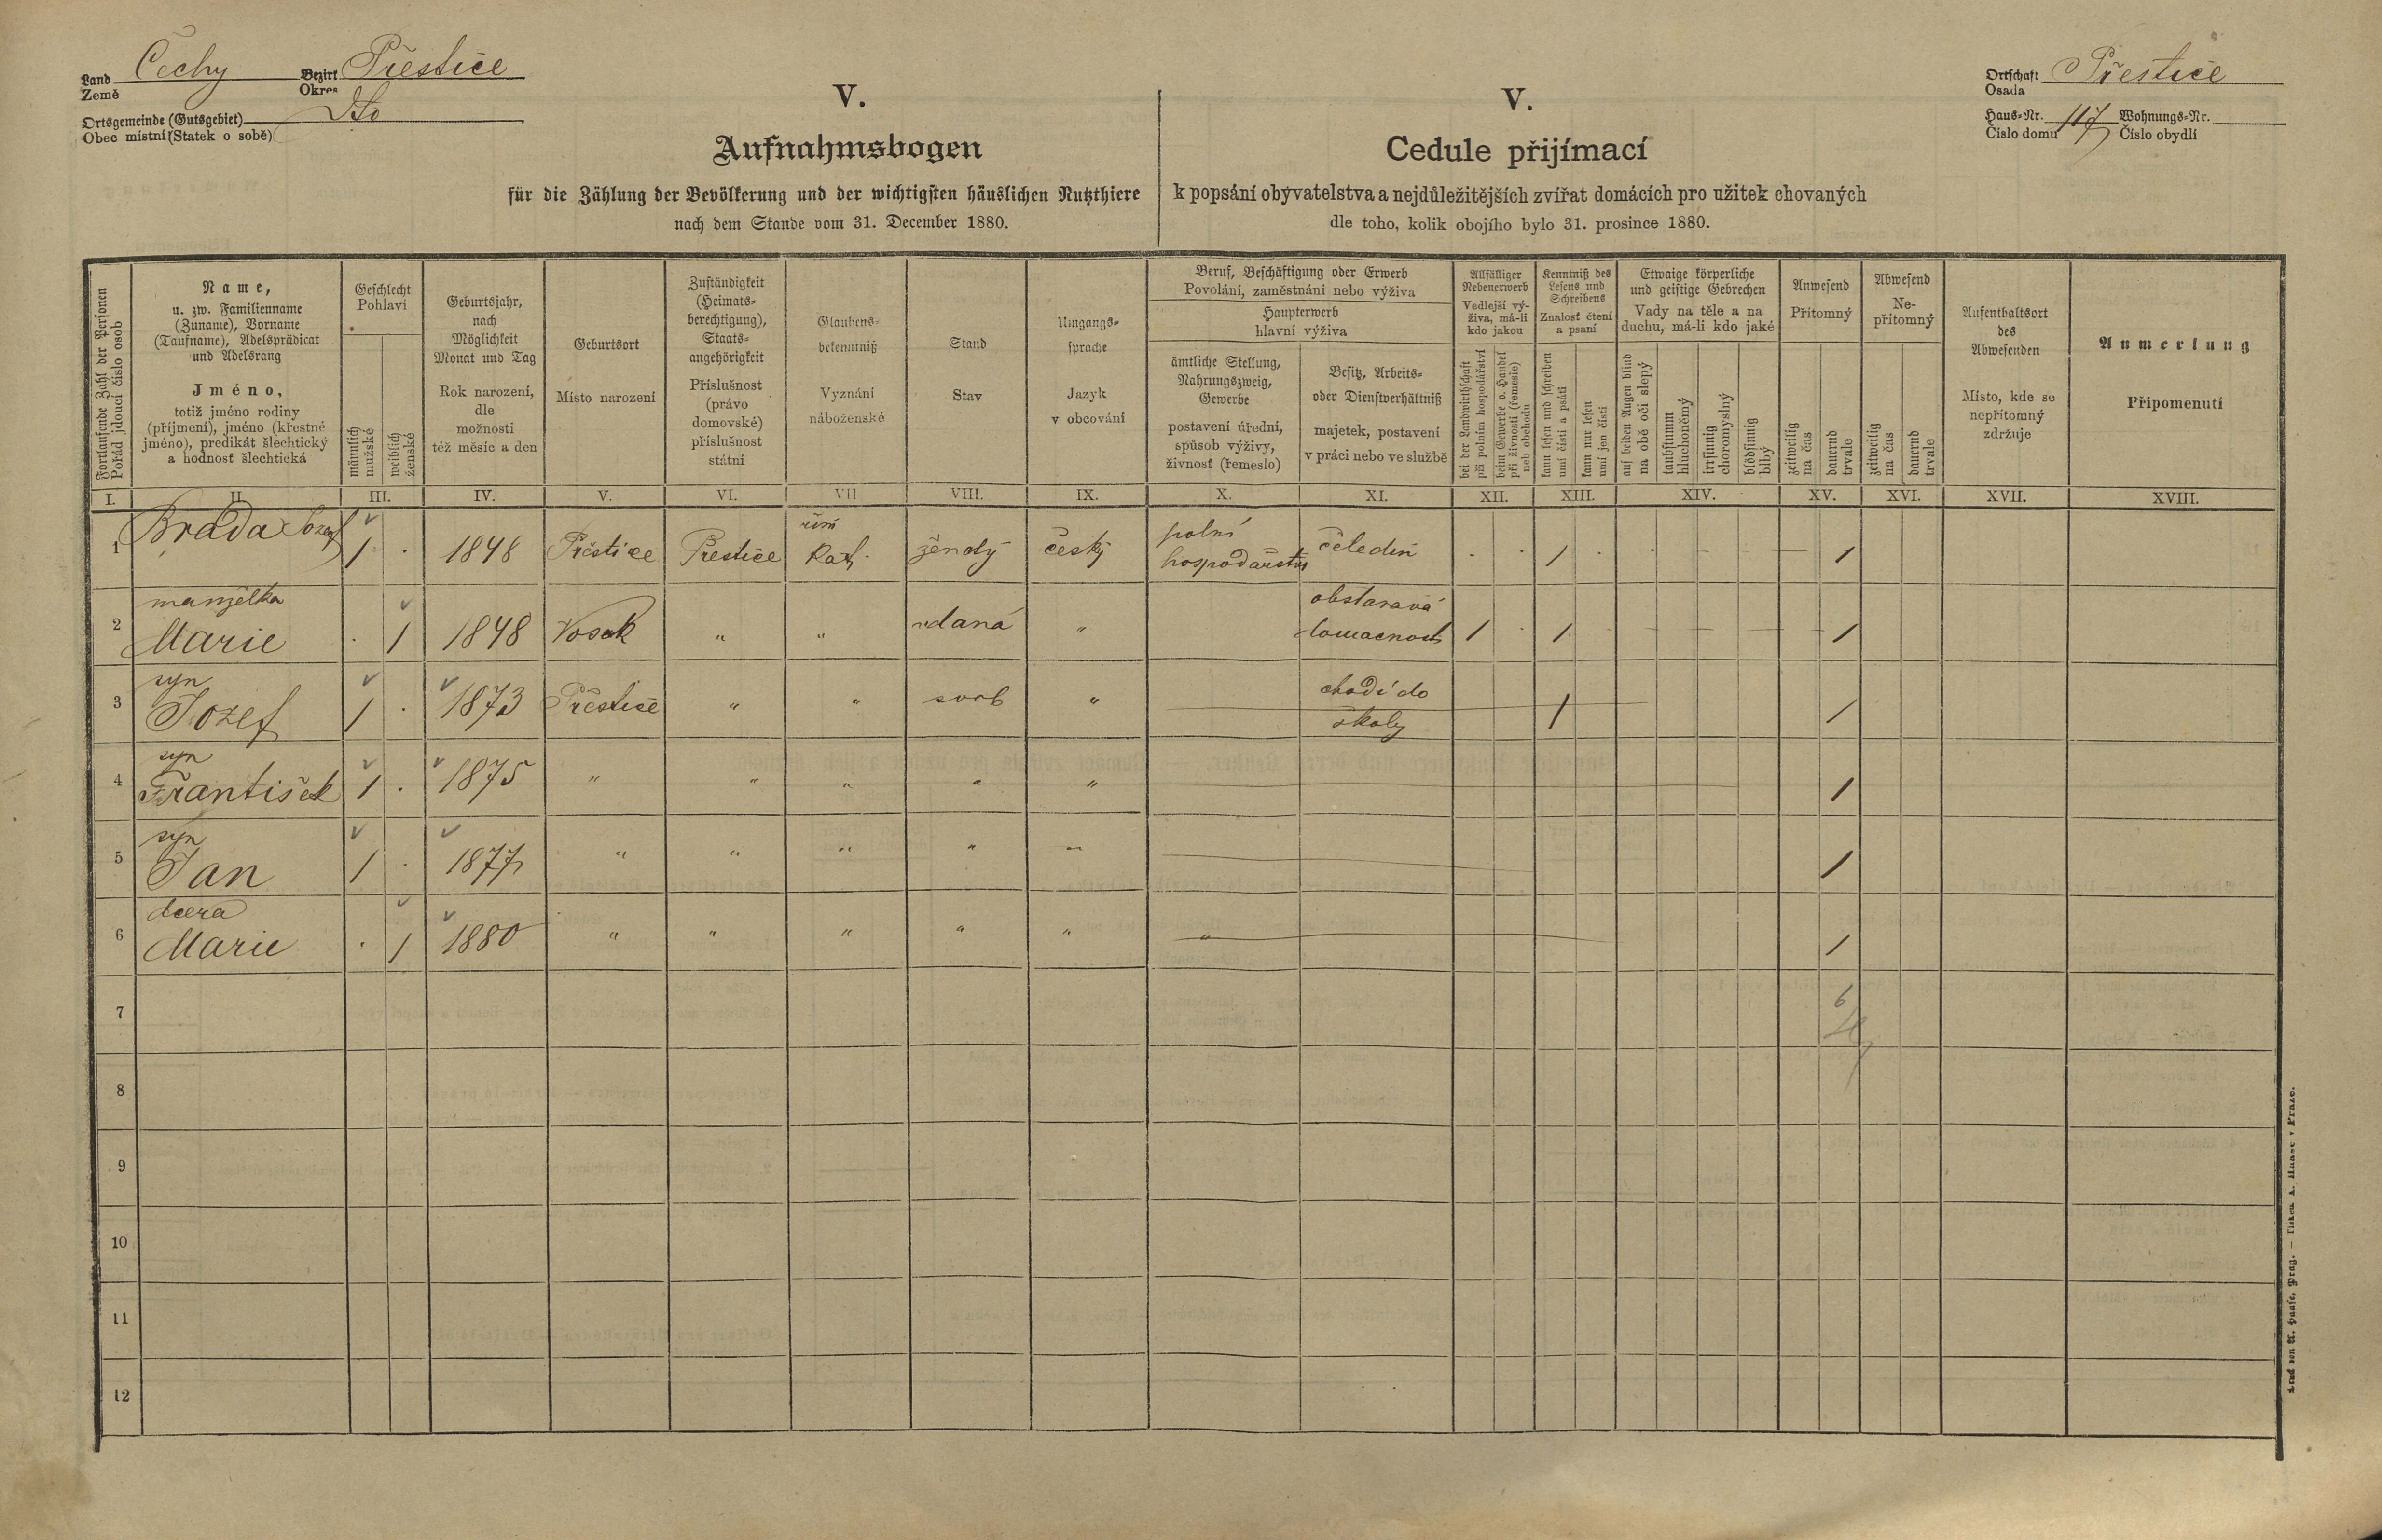 Land Čechy Bezirk Přestice
Země Okres
Ortsgemeinde (Gutsgebiet)
Obec místní (Statek o sobě)
V.
Aufnahmsbogen
für die Zählung der Bevölkerung und der wichtigsten häuslichen Nutzthiere
nach dem Stande vom 31. December 1880.
V.
Cedule přijímací
k popsání obyvatelstva a nejdůležitějších zvířat domácích pro užitek chovaných
dle toho, kolik obojího bylo 31. prosince 1880.
Ortschaft Přestice
Osada
Haus-Nr. 117 Wohnungs-Nr.
Číslo domu Číslo obydlí
Fortlaufende Zahl der Personen
Pořád jdoucí číslo osob
Name,
u. zw. Familienname
(Zuname), Vorname
(Taufname), Adelsprädicat
und Adelsrang
Jméno,
totiž jméno rodiny
(příjmení), jméno (křestné
jméno), predikát šlechtický
a hodnosť šlechtická
Geschlecht
Pohlaví
männlich
mužské
weiblich
ženské
Geburtsjahr,
nach
Möglichkeit
Monat und Tag
Rok narození,
dle
možnosti
též měsíc a den
Geburtsort
Místo narození
Zuständigkeit
(Heimats-
berechtigung),
Staats-
angehörigkeit
Příslušnost
(právo
domovské)
příslušnost
státní
Glaubens-
bekenntniß
Vyznání
náboženské
Stand
Stav
Umgangs-
sprache
Jazyk
v obcování
Beruf, Beschäftigung oder Erwerb
Povolání, zaměstnání nebo výživa
Haupterwerb
hlavní výživa
ämtliche Stellung,
Nahrungszweig,
Gewerbe
postavení úřední,
spůsob výživy,
živnosť (řemeslo)
Besitz, Arbeits-
oder Dienstverhältniß
majetek, postavení
v práci nebo ve službě
Allfälliger
Nebenerwerb
Vedlejší vý-
živa, má-li
kdo jakou
bei der Landwirthschaft
při polním hospodářství
beim Gewerbe o. Handel
při živnosti (řemesle)
neb obchodu
Kenntniß des
Lesens und
Schreibens
Znalosť čtení
a psaní
kann lesen und schreiben
umí čísti a psáti
kann nur lesen
umí jen čísti
Etwaige körperliche
und geistige Gebrechen
Vady na těle a na
duchu, má-li kdo jaké
auf beiden Augen blind
na obě oči slepý
taubstumm
hluchoněmý
irrsinnig
choromyslný
blödsinnig
blbý
Anwesend
Přítomný
zeitweilig
na čas
dauernd
trvale
Abwesend
Ne-
přítomný
zeitweilig
na čas
dauernd
trvale
Aufenthaltsort
des
Abwesenden
Místo, kde se
nepřítomný
zdržuje
Anmerkung
Připomenutí
I. II. III. IV. V. VI. VII VIII. IX. X. XI. XII. XIII. XIV. XV. XVI. XVII. XVIII.
1 Brada Jozef 1 . 1848 Přestice Přestice řím kat. ženatý český polní hospodářství čeledín . . 1 . 1
2 manželka Marie . 1 1848 Vosek „ „ vdaná „ obstarává domacnost 1 . 1 1
3 syn Jozef 1 . 1873 Přestice „ „ svob „ chodí do školy 1 1
4 syn František 1 . 1875 „ „ „ „ „ 1
5 syn Jan 1 . 1877 „ „ „ „ „ 1
6 dcera Marie . 1 1880 „ „ „ „ „ „ 1
7 6
8
9
10
11
12
Druck von A. Haase, Prag. — Tiskem A. Haase v Praze.